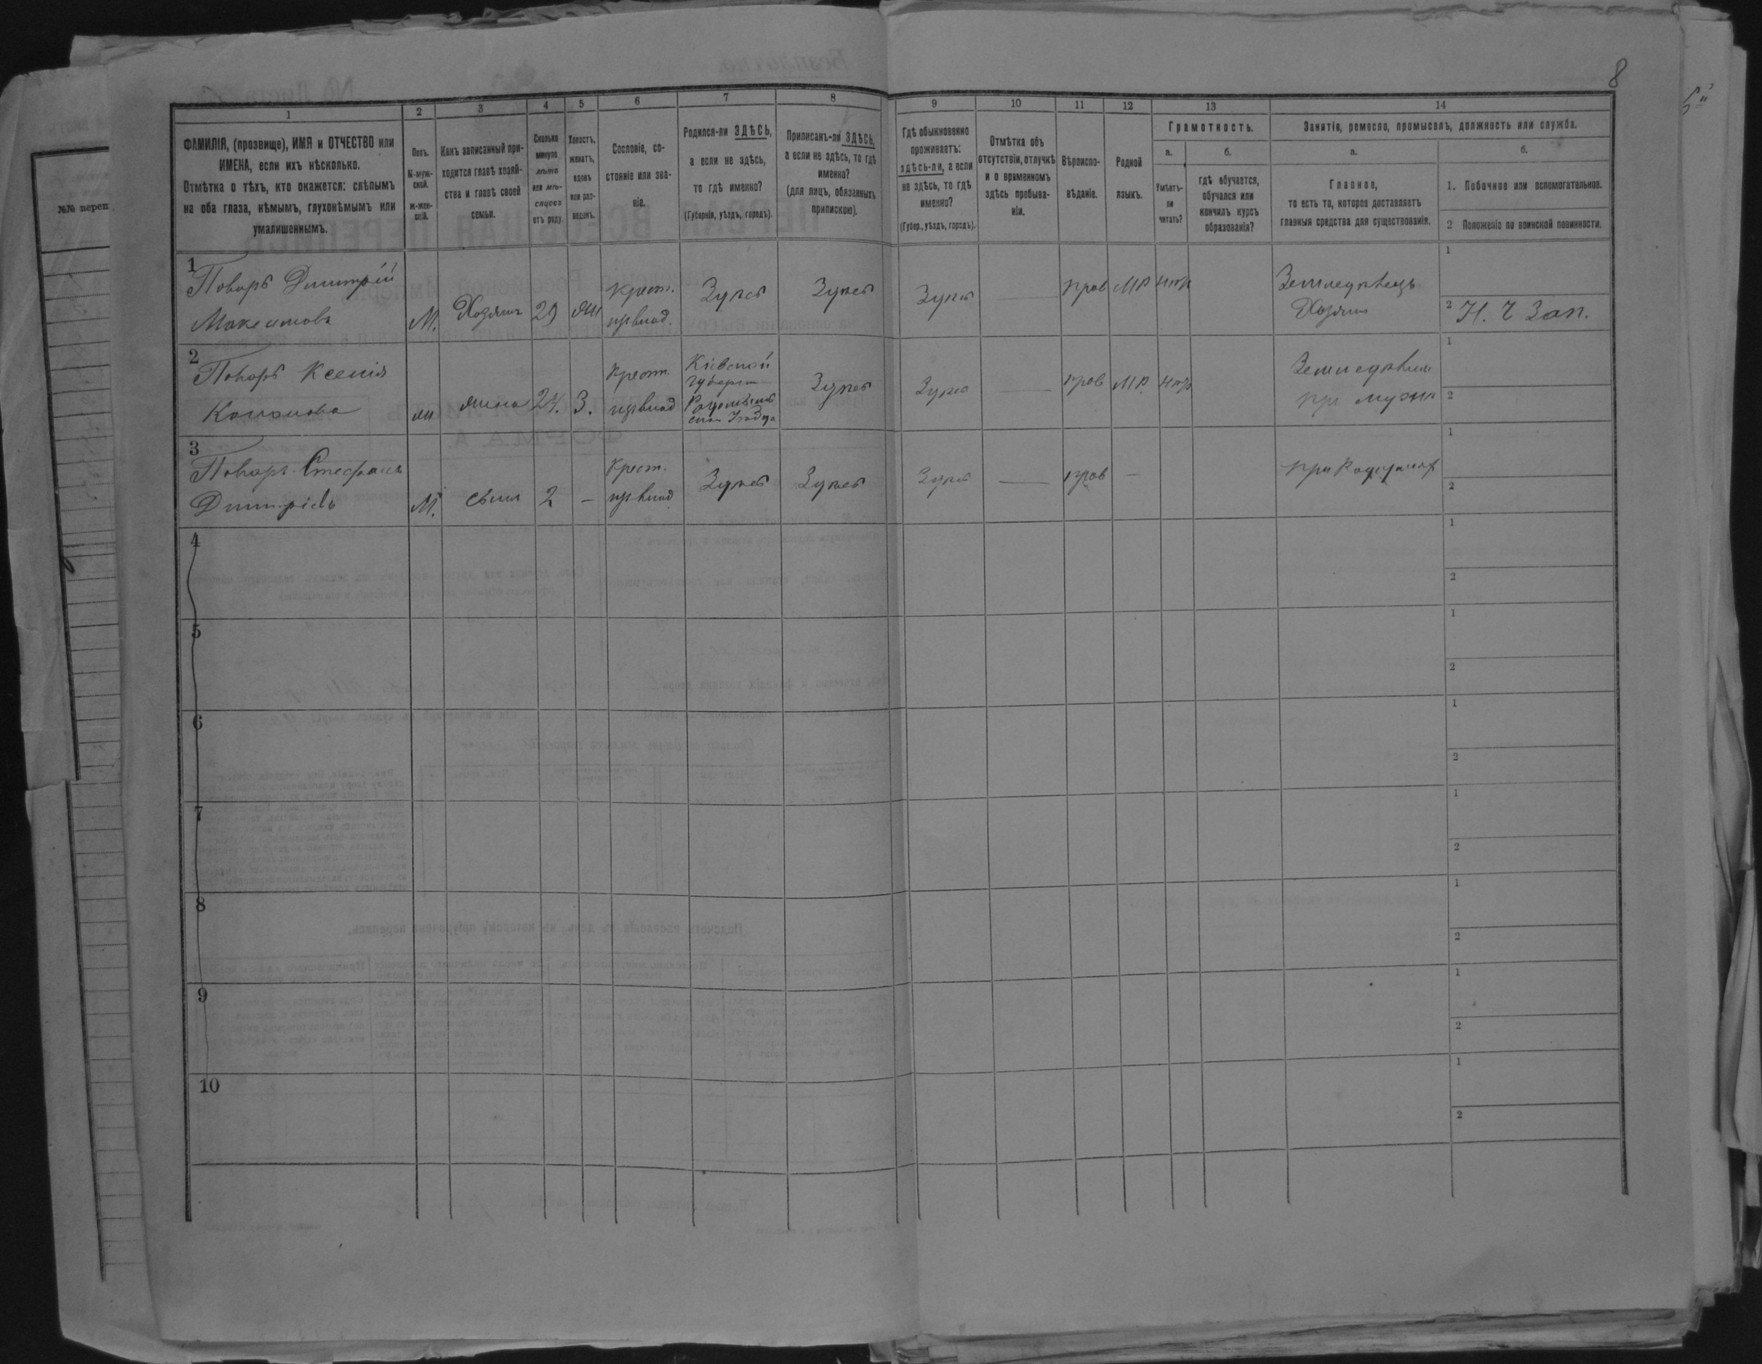 8
1 2 3 4 5 6 7 8 9 10 11 12 13 14
ФАМИЛІЯ, (прозвище), ИМЯ и ОТЧЕСТВО или
ИМЕНА, если ихъ нѣсколько.
Отмѣтка о тѣхъ, кто окажется: слѣпымъ
на оба глаза, нѣмымъ, глухонѣмымъ или
умалишеннымъ.
Полъ.
М-муж-
ской.
ж-жен-
скій.
Какъ записанный при-
ходится главѣ хозяй-
ства и главѣ своей
семьи.
Сколько
минуло
лѣтъ
или мѣ-
сяцевъ
отъ роду.
Холостъ,
женатъ,
вдовъ
или раз-
веденъ.
Сословіе, со-
стояніе или зва-
ніе.
Родился-ли ЗДѢСЬ,
а если не здѣсь,
то гдѣ именно?
(Губернія, уѣздъ, городъ).
Приписанъ-ли ЗДѢСЬ,
а если не здѣсь, то гдѣ
именно?
(для лицъ, обязанныхъ
припискою).
Гдѣ обыкновенно
проживаетъ:
здѣсь-ли, а если
не здѣсь, то гдѣ
именно?
(Губер., уѣздъ, городъ).
Отмѣтка объ
отсутствіи, отлучкѣ
и о временномъ
здѣсь пребыва-
ніи.
Вѣроиспо-
вѣданіе.
Родной
языкъ.
Грамотность.
а.
Умѣетъ-
ли
читать?
б.
гдѣ обучается,
обучался или
кончилъ курсъ
образованія?
Занятіе, ремесло, промыселъ, должность или служба.
а.
Главное,
то есть то, которое доставляетъ
главныя средства для существованія.
б.
1. Побочное или вспомогательное.
2 Положеніе по воинской повинности.
1
Поваръ Дмитрій
Максимовъ
М. Хозяин 29 жн
Крест.
пр влад.
Здѣсь Здѣсь Здѣсь — прав МР нтр
Земледѣлецъ
Хозяин
1
2 Н. Ч Зап.
2
Поваръ Ксенія
Кононова
ж жена 24. З.
Крест.
пр влад
Кіевской
губерн
Радомысль
ского Уѣзда
Здѣсь Здѣсь — прав МР нтр
Земледѣлие
при мужи
1
2
3
Поваръ Стефанъ
Дмитріевъ
М. сынъ 2 —
Крест.
пр влад
Здѣсь Здѣсь Здѣсь — прав —
при Родителях
1
2
4
1
2
5
1
2
6
1
2
7
1
2
8
1
2
9
1
2
10
1
2
№№ переп